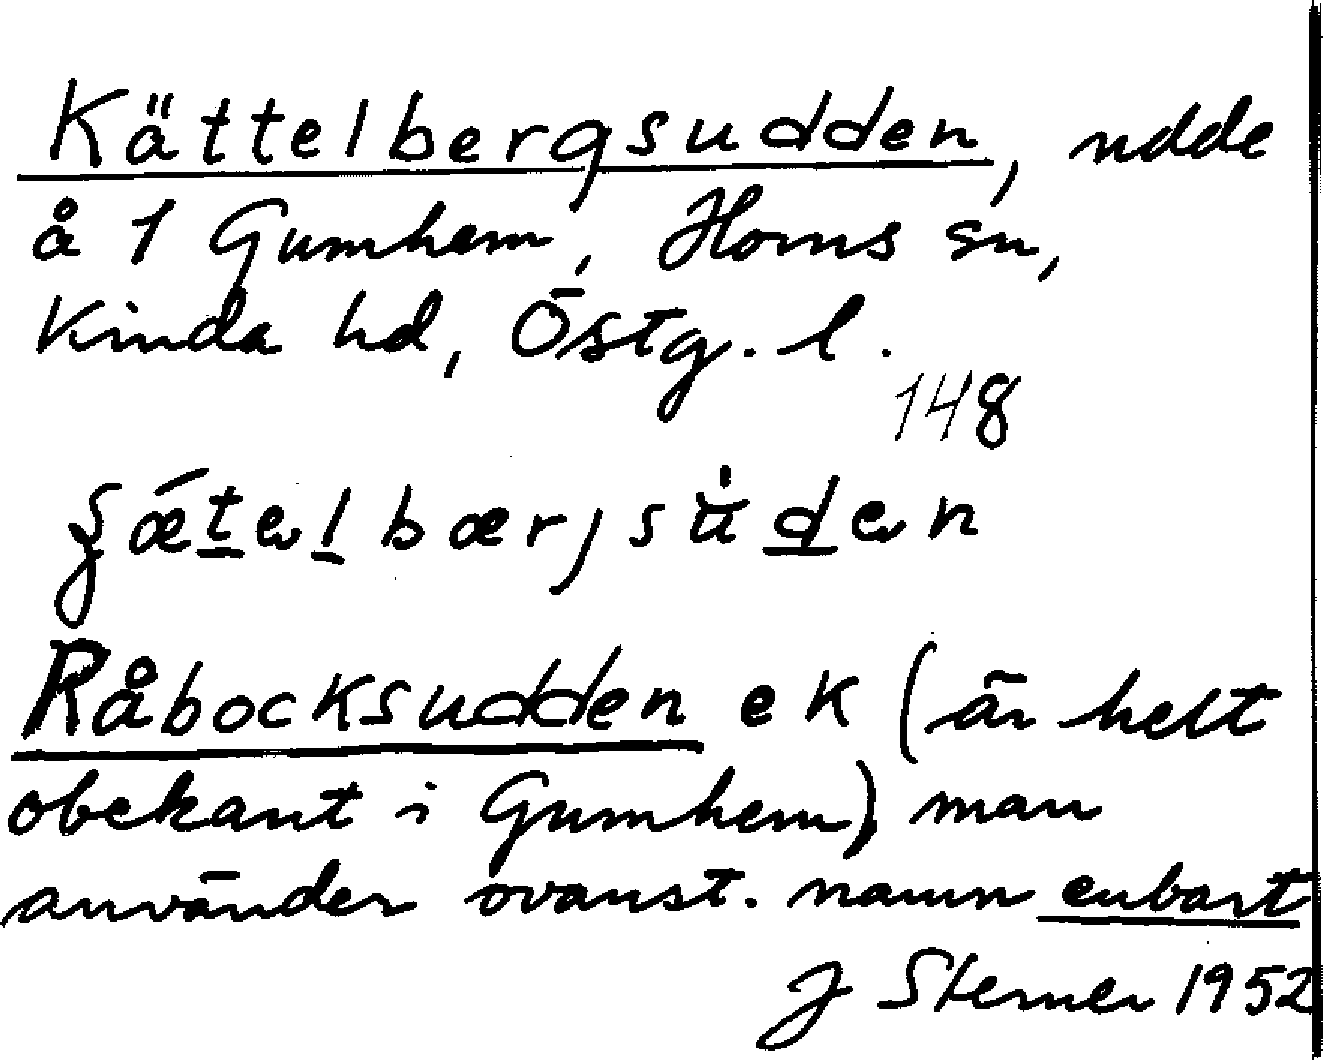 Kättelbergsudden, udde
å 1 Gumhem, Horns sn,
Kinda hd, Östg. l.
148
Råbocksudden ek (är helt
obekant i Gumhem), man
använder ovanst. namn enbart
J Sterner 1952